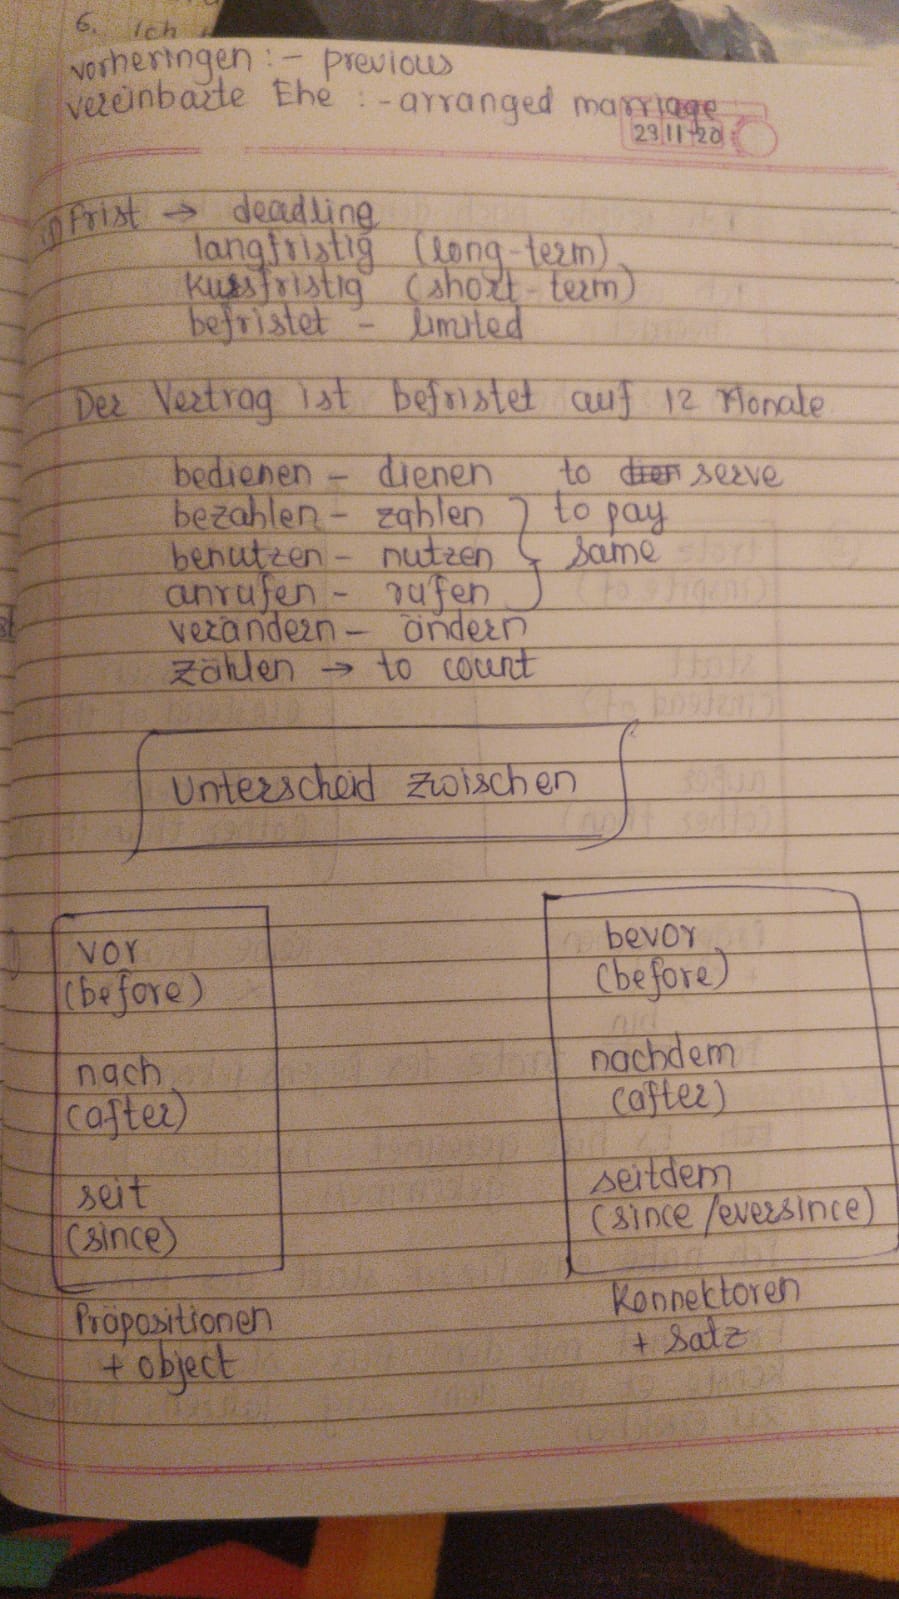 6. Ich
vorheringen :- previous
vereinbarte Ehe :- arranged marriage
29 11 20
1) Frist → deadling
langfristig (long-term)
kurzfristig (short-term)
befristet - limited
Der Vertrag ist befristet auf 12 Monate
bedienen - dienen to serve
bezahlen - zahlen } to pay
benutzen - nutzen } same
anrufen - rufen }
verändern - ändern
zählen → to count
Unterscheid zwischen
vor
(before)
nach
(after)
seit
(since)
Präpositionen
+ object
bevor
(before)
nachdem
(after)
seitdem
(since/eversince)
Konnektoren
+ Satz